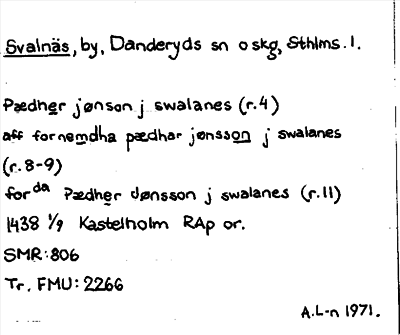 Svalnäs, by, Danderyds sn o skg, Sthlms. l.
Pædher jønson j swalanes (r.4)
aff fornemdha pædhar jønsson j swalanes
(r.8-9)
forda Pædher Jønsson j swalanes (r.11)
1438 1/9 Kastelholm RAp or.
SMR:806
Tr. FMU: 2266
A.L-n 1971.